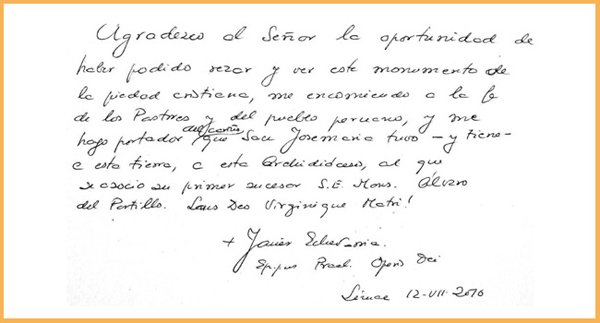 Agradezco al Señor la oportunidad de
haber podido rezar y ver este monumento de
la piedad cristiana, me encomiendo a la fe
de los Pastores y del pueblo peruano, y me
hago portador del cariño que San Josemaría tuvo – y tiene –
a esta tierra, a esta Archidiócesis, al que
se asoció su primer sucesor S.E. Mons. Álvaro
del Portillo. Laus Deo Virginique Matri!
+ Javier Echevarría
Eppus Prael. Operis Dei
12-VII-2010